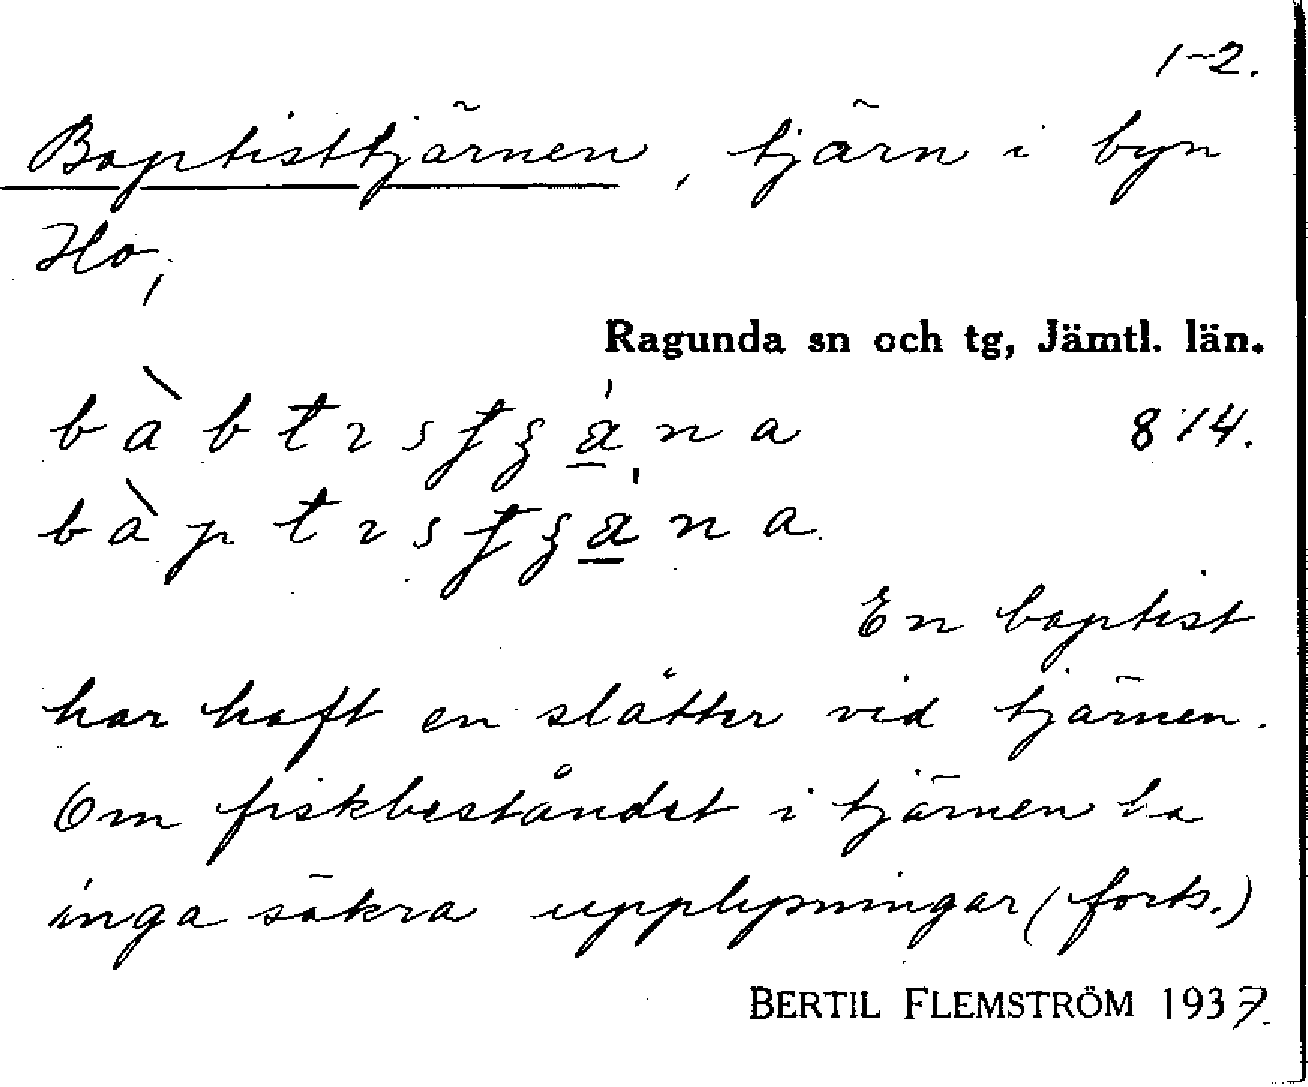 1-2.
Baptisttjärnen, tjärn i byn
Ho,
Ragunda sn och tg, Jämtl. län.
814.
En baptist
har haft en slåtter vid tjärnen.
Om fiskbeståndet i tjärnen ha
inga säkra upplysningar (forts.)
BERTIL FLEMSTRÖM 1937.